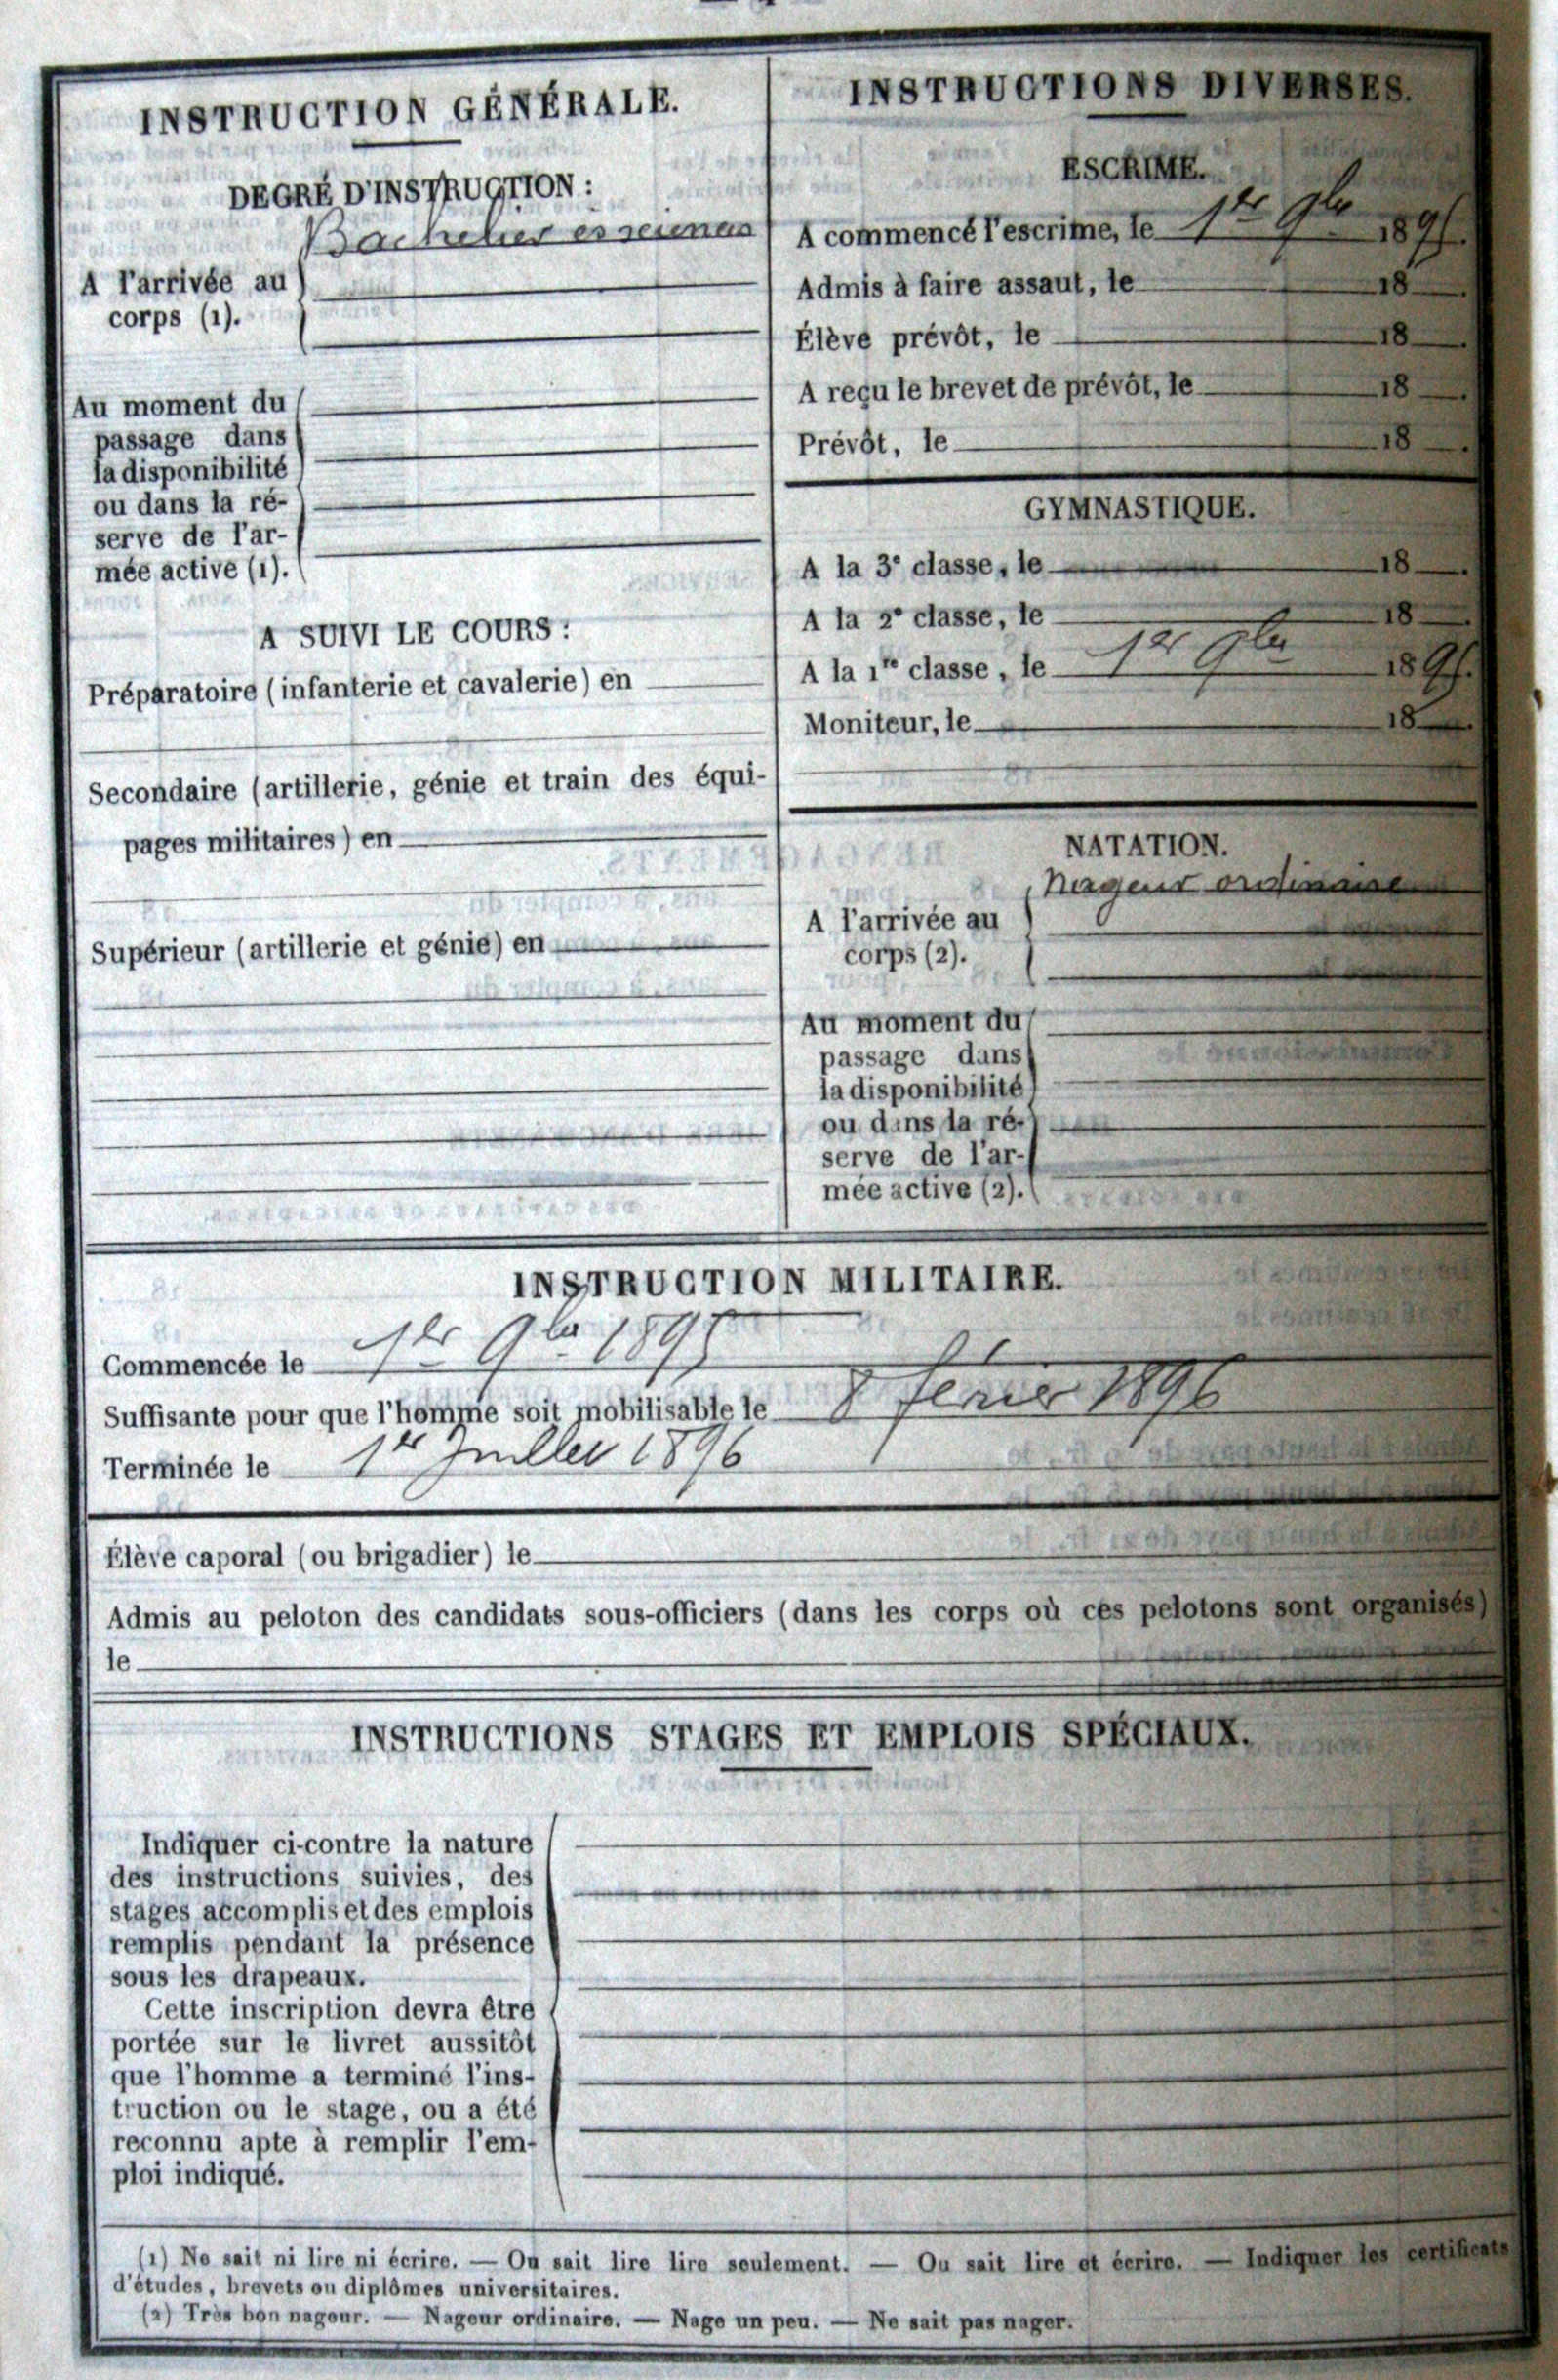 INSTRUCTION GÉNÉRALE.
DEGRÉ D'INSTRUCTION :
Bachelier es sciences
A l'arrivée au
corps (1).
Au moment du
passage dans
la disponibilité
ou dans la ré-
serve de l'ar-
mée active (1).
A SUIVI LE COURS :
Préparatoire (infanterie et cavalerie) en
Secondaire (artillerie, génie et train des équi-
pages militaires) en
Supérieur (artillerie et génie) en
INSTRUCTIONS DIVERSES.
ESCRIME.
A commencé l'escrime, le 1er 9bre 1895.
Admis à faire assaut, le 18
Élève prévôt, le 18
A reçu le brevet de prévôt, le 18
Prévôt, le 18
GYMNASTIQUE.
A la 3e classe, le 18
A la 2e classe, le 18
A la 1re classe, le 1er 9bre 1895.
Moniteur, le 18
NATATION.
Nageur ordinaire
A l'arrivée au
corps (2).
Au moment du
passage dans
la disponibilité
ou dans la ré-
serve de l'ar-
mée active (2).
INSTRUCTION MILITAIRE.
Commencée le 1er 9bre 1895
Suffisante pour que l'homme soit mobilisable le 1896
Terminée le 1er Juillet 1896
Élève caporal (ou brigadier) le
Admis au peloton des candidats sous-officiers (dans les corps où ces pelotons sont organisés)
le
INSTRUCTIONS STAGES ET EMPLOIS SPÉCIAUX.
Indiquer ci-contre la nature
des instructions suivies, des
stages accomplis et des emplois
remplis pendant la présence
sous les drapeaux.
Cette inscription devra être
portée sur le livret aussitôt
que l'homme a terminé l'ins-
truction ou le stage, ou a été
reconnu apte à remplir l'em-
ploi indiqué.
(1) Ne sait ni lire ni écrire. — Ou sait lire lire seulement. — Ou sait lire et écrire. — Indiquer les certificats
d'études, brevets ou diplômes universitaires.
(2) Très bon nageur. — Nageur ordinaire. — Nage un peu. — Ne sait pas nager.